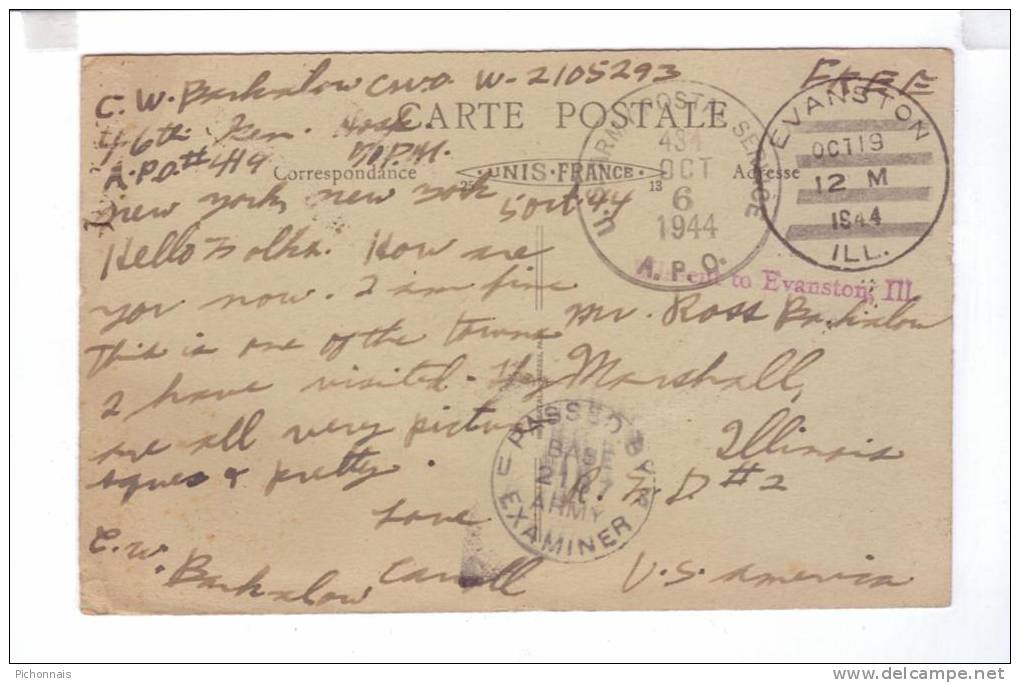 C. W. Barkalow CWO. W-2105293
FREE
46th Gen. Hosp.
CARTE POSTALE
A.P.O.#419 % P.M.
Correspondance
UNIS-FRANCE
25 13
Adresse
New York, New York
5 Oct. 44
U.S. ARMY POSTAL SERVICE
OCT
6
1944
A.P.O.
EVANSTON
OCT 19
12 M
1944
ILL.
Hello Folks. How are
you now. I am fine
This is one of the towns
I have visited. They
are all very pictur
esques & pretty
Love
Carroll
C.W. Barkalow
to Evanston, Ill.
Mr. Ross Barkalow
Marshall,
Illinois
R.F.D #2
U.S. America
PASSED BY
BASE
ARMY
EXAMINER
Pichonnais
delcampe.net